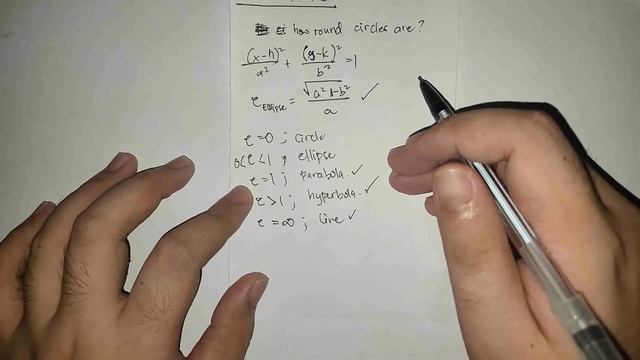 how round circles are?
(x-h)²/a² + (y-k)²/b² = 1
e Ellipse = √a²-b²/a ✓
e=0 ; circle
0<e<1 ; ellipse
e=1 ; parabola. ✓
e>1 ; hyperbola. ✓
e=∞ ; line ✓